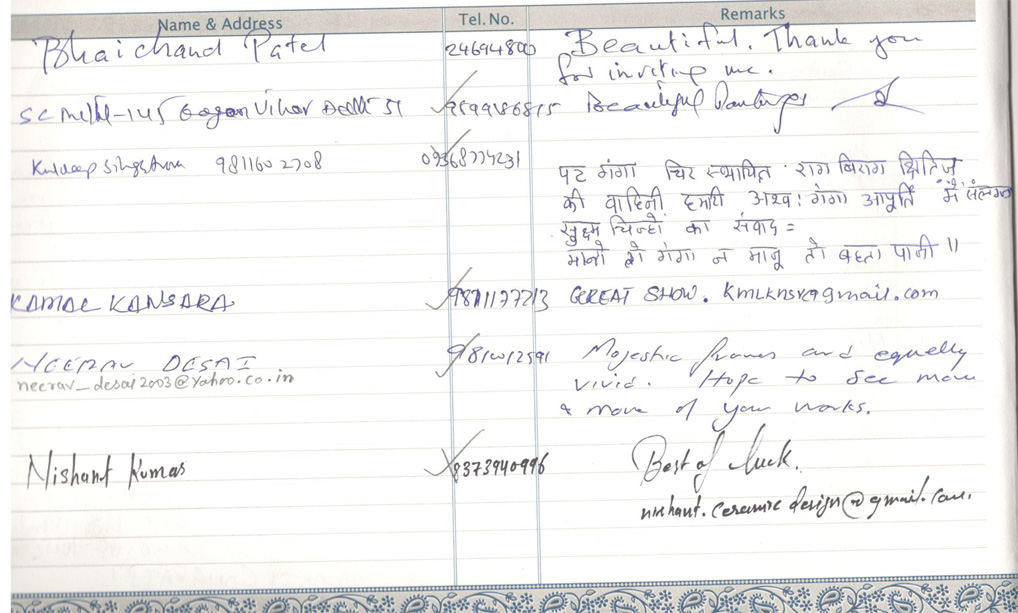 Name & Address Tel. No. Remarks
Bhaichand Patel 24694800 Beautiful. Thank you
for inviting me.
145 Gagan Vihar Delhi 51 Beautiful Paintings
Kuldeep Singh 9811602708 09368774231
पट गंगा चिर स्थापित राग बिराग क्षितिज
की वाहिनी हमारी अश्व: गंगा आपूर्ति में संलग्न
सुक्ष्म चिन्हों का संवाद =
मानो तो गंगा न मानू तो बहता पानी ॥
KAMAL KANSARA 9871177213 GREAT SHOW. kmlknsr@gmail.com
NEERAV DESAI 9810012591 Majestic frames and equally
neerav_desai2003@yahoo.co.in vivid. Hope to see more
& more of your works.
Nishant Kumar 8373940996 Best of luck.
nishant.ceramic design@gmail.com.